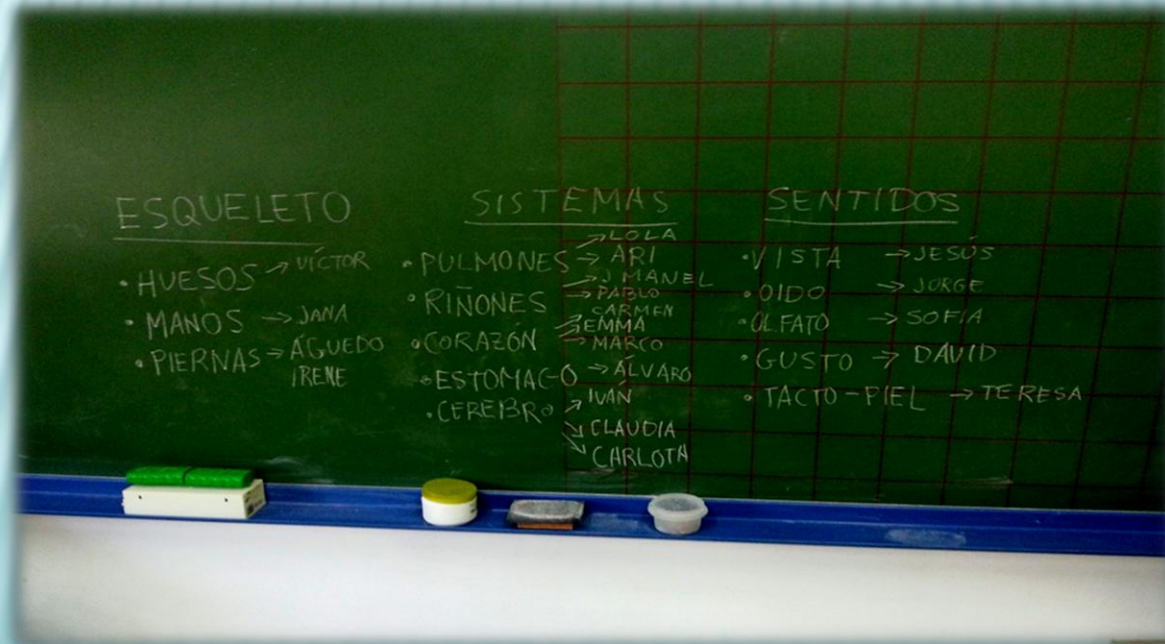 ESQUELETO
• HUESOS → VÍCTOR
• MANOS → JANA
• PIERNAS → ÁGUEDO
IRENE
SISTEMAS
→ LOLA
• PULMONES → ARI
→ J MANEL
• RIÑONES → PABLO
CARMEN
• CORAZÓN → EMMA
→ MARCO
• ESTOMAGO → ÁLVARO
• CEREBRO → IVÁN
→ CLAUDIA
→ CARLOTA
SENTIDOS
• VISTA → JESÚS
• OIDO → JORGE
• OLFATO → SOFÍA
• GUSTO → DAVID
• TACTO-PIEL → TERESA